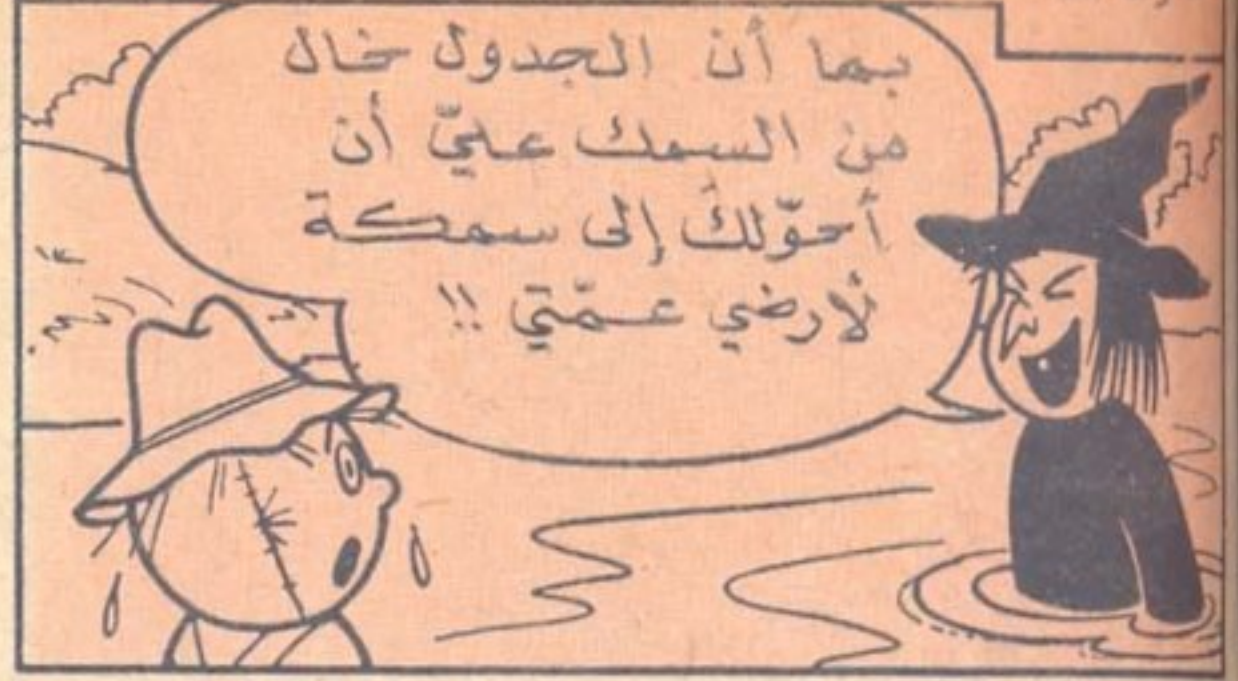 بما أن الجدول خال
من السمك عليّ أن
أحوّلك إلى سمكة
لأرضي عمّتي !!